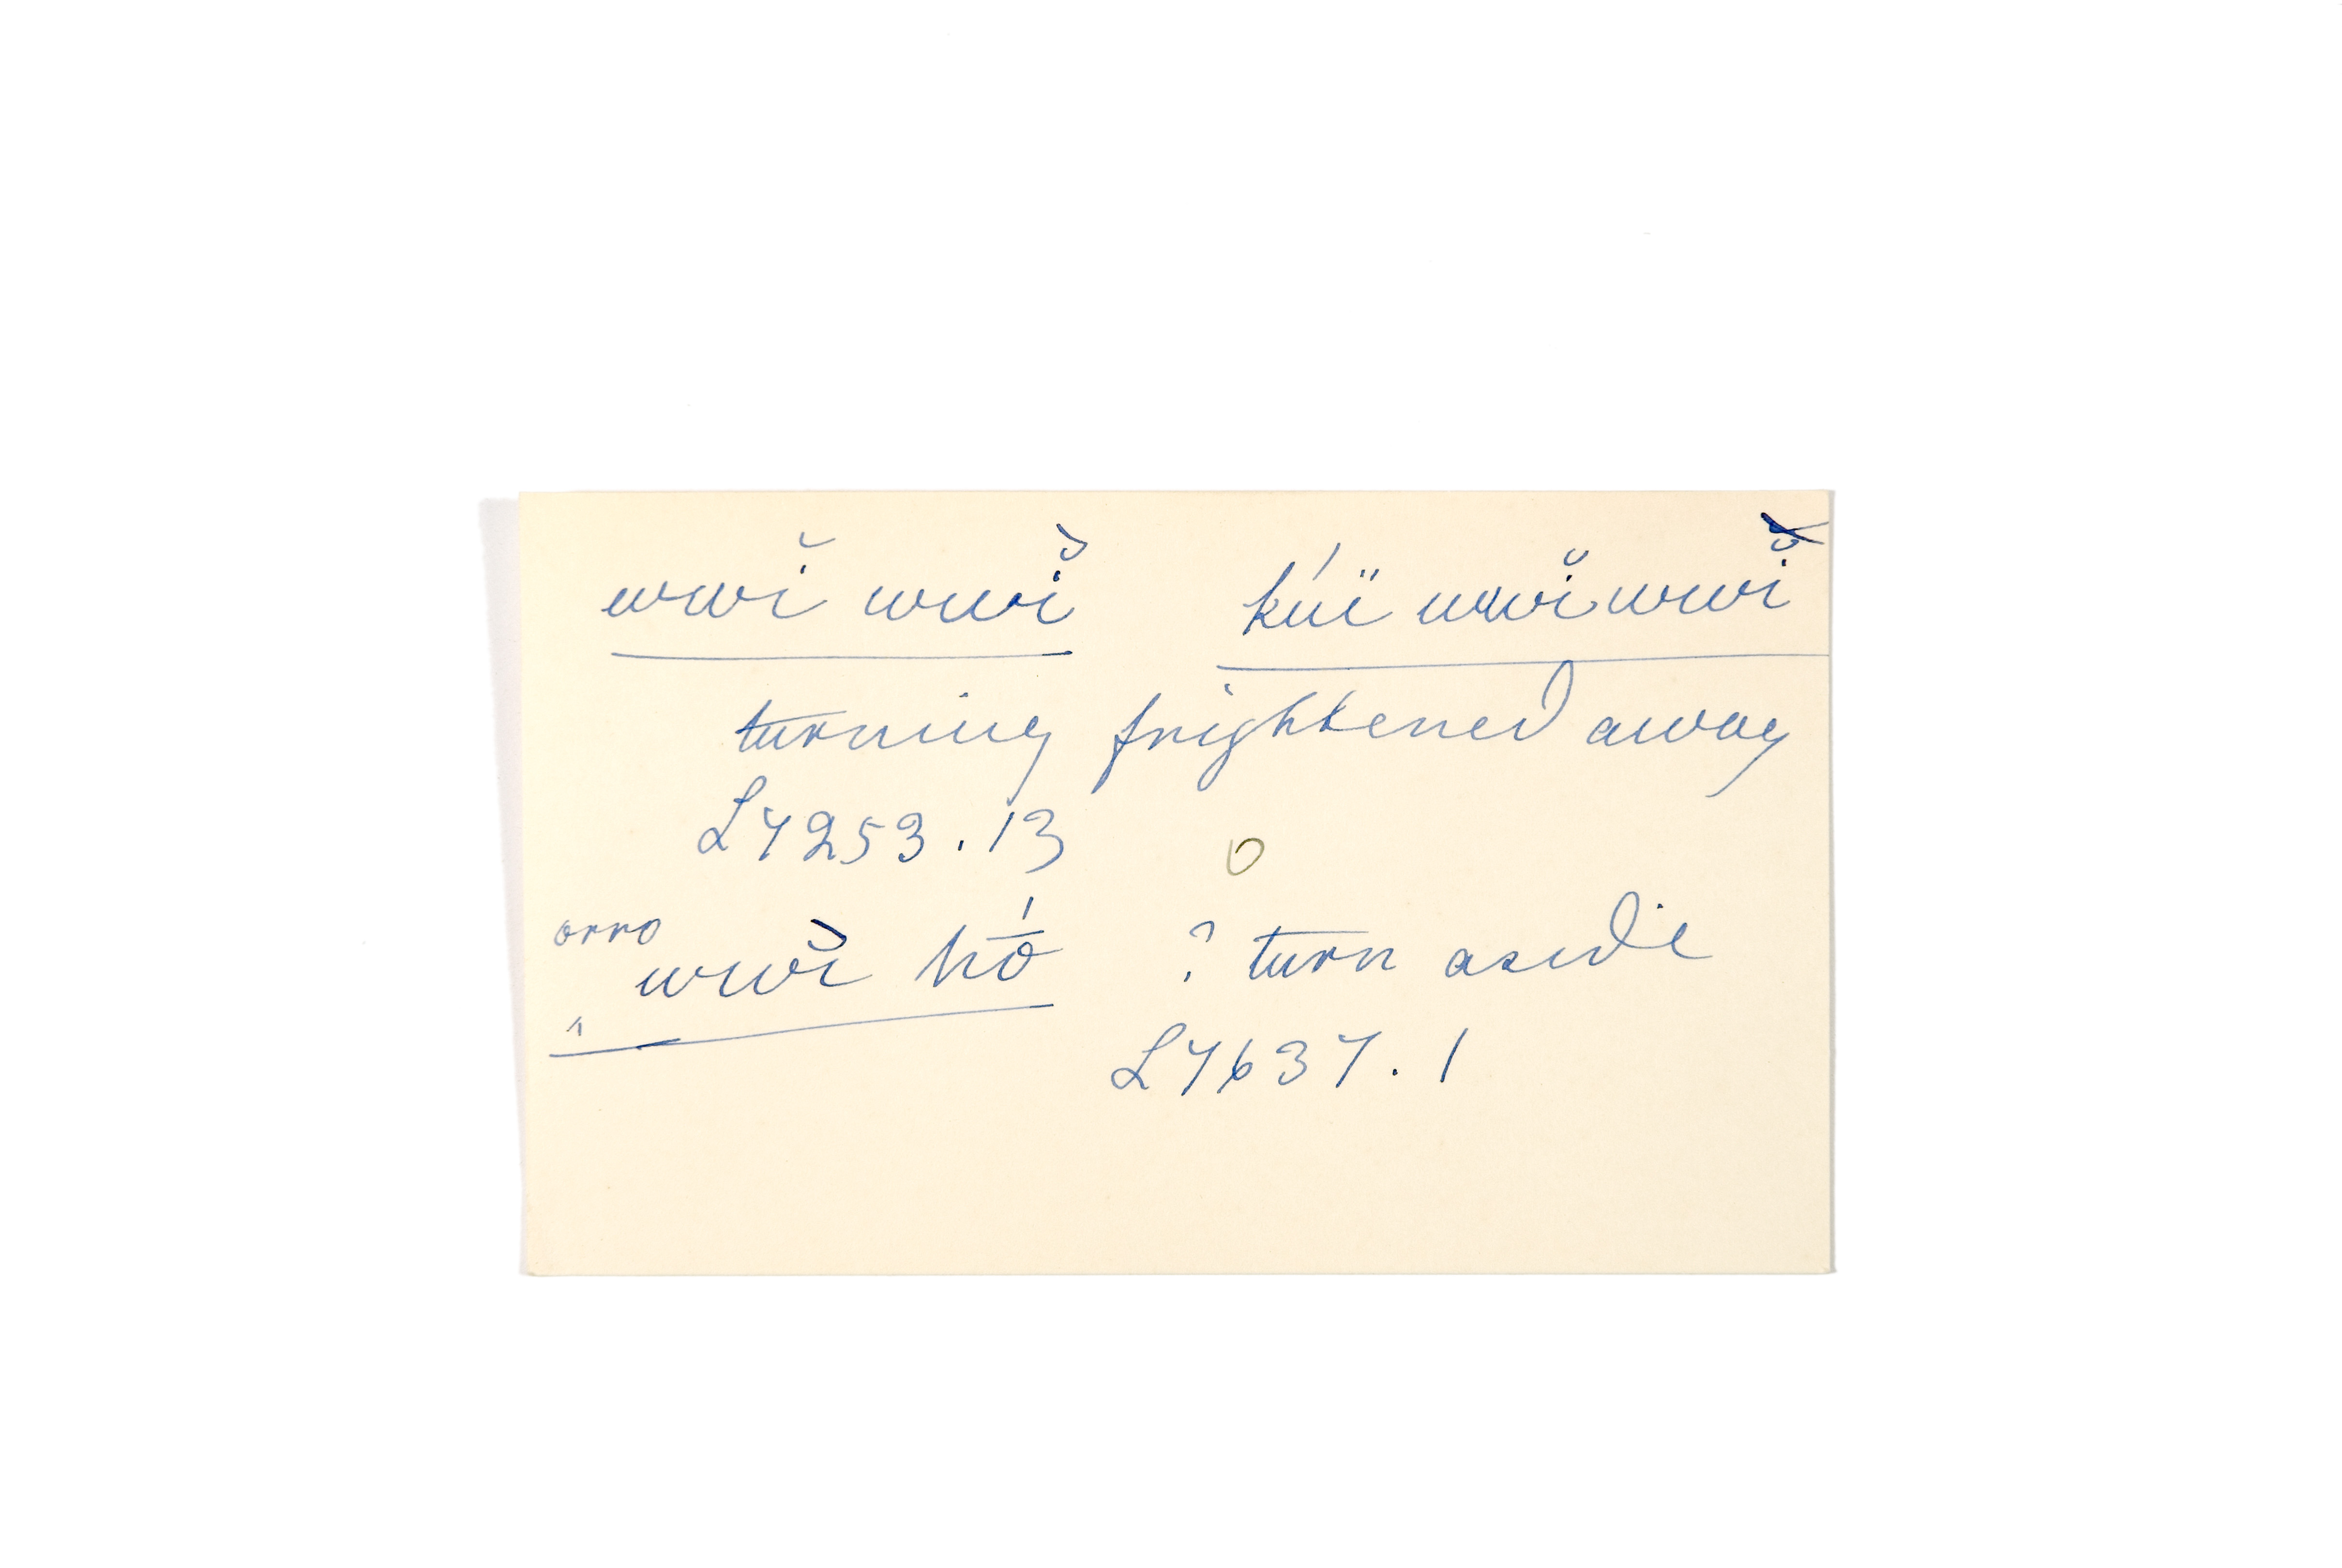 wwĭ wwĭ kúï wwĭ wwĭ
turning frightened away
L7253.13
o
orro
wwĭ hṓ ? turn aside
"
L7637.1